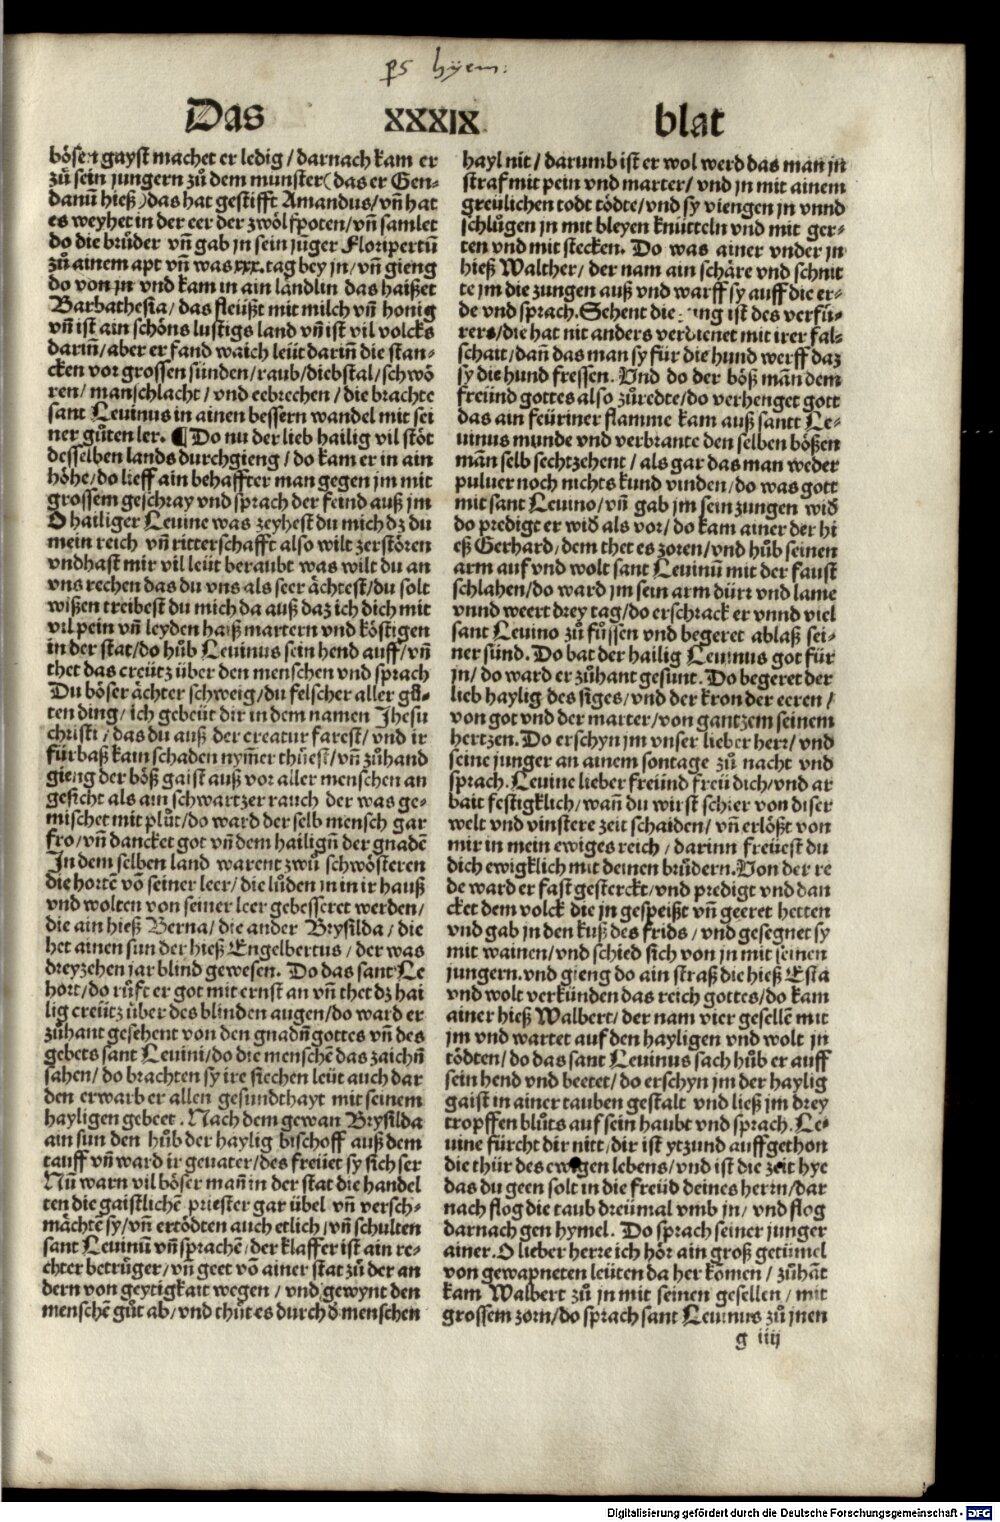 ps hyem:
Das XXXIX blat
bösen gayst machet er ledig / darnach kam er
zů sein jungern zů dem munster (das er Gen-
danū hieß) das hat gestifft Amandus / vn̄ hat
es weyhet in der eer der zwölfpoten / vn̄ samlet
do die brůder vn̄ gab jn sein jūger Floripertū
zů ainem apt vn̄ was xxx. tag bey jn / vn̄ gieng
do von jn vnd kam in ain ländlin das haißet
Barbathesia / das fleüßt mit milch vn̄ honig
vn̄ ist ain schöns lustigs land vn̄ ist vil volcks
darin̄ / aber er fand waich leüt darin̄ die stan-
cken vor grossen sünden / raub / diebstal / schwö
ren / manschlacht / vnd eebrechen / die brachte
sant Leuinus in ainen bessern wandel mit sei
ner gůten ler. ¶ Do nu der lieb hailig vil stöt
desselben lands durchgieng / do kam er in ain
höhe / do lieff ain behaffter man gegen jm mit
grossem geschray vnd sprach der feind auß jm
O hailiger Leuine was zeyhest du mich dz du
mein reich vn̄ ritterschafft also wilt zerstören
vnd hast mir vil leüt beraubt was wilt du an
vns rechen das du vns als seer ächtest / du solt
wißen treibest du mich da auß daz ich dich mit
vil pein vn̄ leyden haiß martern vnd köstigen
in der stat / do hůb Leuinus sein hend auff / vn̄
thet das creütz über den menschen vnd sprach
Du böser ächter schweig / du felscher aller gů-
ten ding / ich gebeüt dir in dem namen Jhesu
christi / das du auß der creatur farest / vnd ir
fürbaß kain schaden nym̄er thüest / vn̄ zůhand
gieng der böß gaist auß vor aller menschen an
gesicht als ain schwartzer rauch der was ge-
mischet mit plůt / do ward der selb mensch gar
fro / vn̄ dancket got vn̄ dem hailign̄ der gnadē
In dem selben land warent zwů schwösteren
die hortē vō seiner leer / die lůden in in ir hauß
vnd wolten von seiner leer gebesseret werden /
die ain hieß Berna / die ander Brysilda / die
het ainen sun der hieß Engelbertus / der was
dreyzehen jar blind gewesen. Do das sant Le
hort / do růft er got mit ernst an vn̄ thet dz hai
lig creütz über des blinden augen / do ward er
zůhant gesehent von den gnadn̄ gottes vn̄ des
gebets sant Leuini / do die menschē das zaichn̄
sahen / do brachten sy ire siechen leüt auch dar
den erwarb er allen gesundthayt mit seinem
hayligen gebeet. Nach dem gewan Brysilda
ain sun den hůb der haylig bischoff auß dem
tauff vn̄ ward ir geuater / des freüet sy sich ser
Nū warn vil böser man̄ in der stat die handel
ten die gaistlichē priester gar übel vn̄ versch-
mächtē sy / vn̄ ertödten auch etlich / vn̄ schulten
sant Leuinū vn̄ sprachē / der klaffer ist ain re-
chter betrüger / vn̄ geet vō ainer stat zů der an
dern von geytigkait wegen / vnd gewynt den
menschē gůt ab / vnd thůt es durch d menschen
hayl nit / darumb ist er wol werd das man jn
straf mit pein vnd marter / vnd jn mit ainem
greülichen todt tödte / vnd sy viengen jn vnnd
schlůgen jn mit bleyen knütteln vnd mit ger-
ten vnd mit stecken. Do was ainer vnder jn
hieß Walther / der nam ain schäre vnd schnit
te jm die zungen auß vnd warff sy auff die er-
de vnd sprach. Sehent die ist des verfü-
rers / die hat nit anders verdienet mit irer fal-
schait / dan̄ das man sy für die hund werff daz
sy die hund fressen. Vnd do der böß man̄ dem
freünd gottes also zůredte / do verhenget gott
das ain feüriner flamme kam auß sanct Le-
uinus munde vnd verbrante den selben bößen
man̄ selb sechtzehent / als gar das man weder
puluer noch nichts kund vinden / do was gott
mit sant Leuino / vn̄ gab jm sein zungen wid
do predigt er wid als vor / do kam ainer der hi
eß Gerhard / dem thet es zoren / vnd hůb seinen
arm auf vnd wolt sant Leuinū mit der faust
schlahen / do ward jm sein arm dürr vnd lame
vnnd weert drey tag / do erschrack er vnnd viel
sant Leuino zů fůssen vnd begeret ablaß sei-
ner sünd. Do bat der hailig Leuinus got für
jn / do ward er zůhant gesunt. Do begeret der
lieb haylig des siges / vnd der kron der eeren /
von got vnd der marter / von gantzem seinem
hertzen. Do erschyn jm vnser lieber herr / vnd
seine junger an ainem sontage zů nacht vnd
sprach. Leuine lieber freünd freü dich / vnd ar
bait festigklich / wan̄ du wirst schier von diser
welt vnd vinstere zeit schaiden / vn̄ erlößt von
mir in mein ewiges reich / darinn freüest du
dich ewigklich mit deinen brüdern. Von der re
de ward er fast gesterckt / vnd predigt vnd dan
cket dem volck die jn gespeißt vn̄ geeret hetten
vnd gab jn den kuß des frids / vnd gesegnet sy
mit wainen / vnd schied sich von jn mit seinen
jungern. vnd gieng do ain straß die hieß Esta
vnd wolt verkünden das reich gottes / do kam
ainer hieß Walbert / der nam vier gesellē mit
jm vnd wartet auf den hayligen vnd wolt jn
tödten / do das sant Leuinus sach hůb er auff
sein hend vnd beetet / do erschyn jm der haylig
gaist in ainer tauben gestalt vnd ließ jm drey
tropffen blůts auf sein haubt vnd sprach. Le-
uine fürcht dir nitt / dir ist ytzund auffgethon
die thür des ewigen lebens / vnd ist die zeit hye
das du geen solt in die freüd deines herrn / dar
nach flog die taub dreümal vmb jn / vnd flog
darnach gen hymel. Do sprach seiner junger
ainer. O lieber herre ich hör ain groß getümel
von gewapneten leüten da her kōmen / zůhāt
kam Walbert zů jn mit seinen gesellen / mit
grossem zorn / do sprach sant Leuinus zů jnen
g iiij
Digitalisierung gefördert durch die Deutsche Forschungsgemeinschaft - DFG